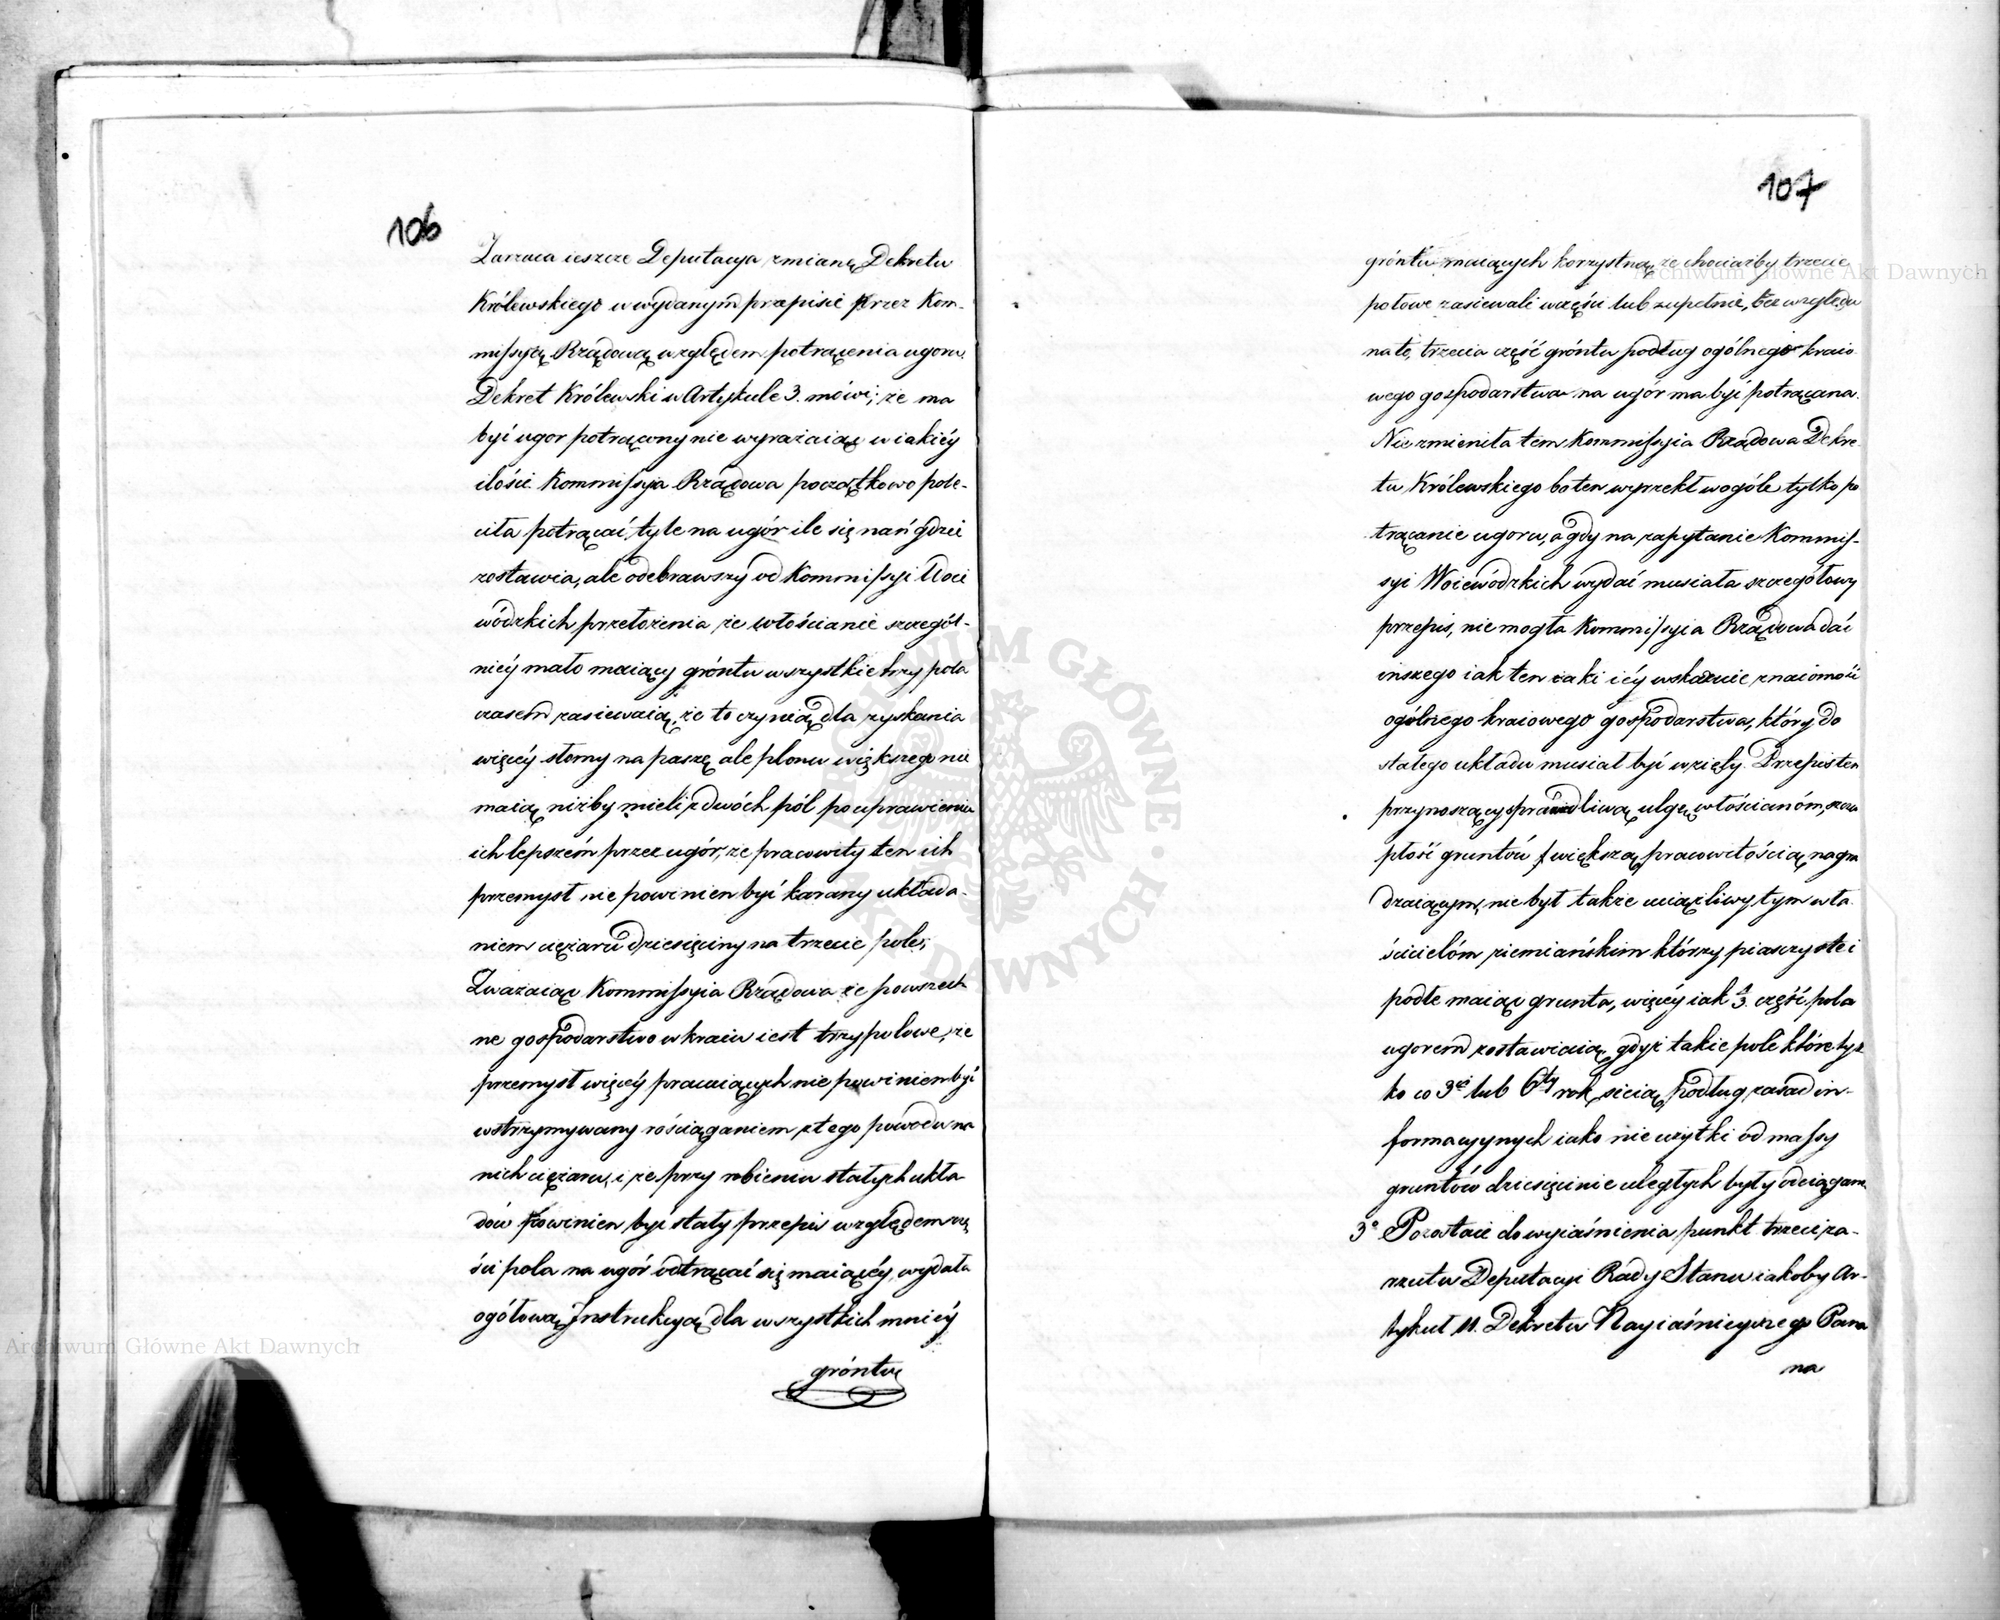 106
Zarzuca ieszcze Deputacya zmianę Dekretu
Królewskiego w wydanym przepisie przez Kom-
missyą Rządową względem potrącenia ugoru.
Dekret Królewski w Artykule 3. mówi; że ma
być ugor potrącony nie wyrażaiąc w iakiéy
ilości. Kommissya Rządowa początkowo pole-
ciła potrącać tyle na ugór ile się nań gdzie
zostawia, ale odebrawszy od Kommissyi Woie
wódzkich przełożenia że włościanie szczegól-
niéy mało maiący gróntu wszystkie trzy pola
czasem zasiewaią, że to czynią dla zyskania
więcéy słomy na paszę ale plonu większego nie
maią niżby mieli z dwóch pól po uprawieniu
ich lepszém przez ugór, że pracowity ten ich
przemysł nie powinien być karany układa-
niem ciężaru dziesięciny na trzecie pole;
Zważaiąc Kommissyia Rządowa że powszech
ne gospodarstwo w kraiu iest trzypolowe, że
przemysł więcéy pracuiących nie powinien być
wstrzymywany rościąganiem z tego powodu na
nich ciężaru, i że przy robieniu stałych ukła
dów powinien być stały przepis względem czę
ści pola na ugór odtrącać się maiącéy, wydała
ogółową Instrukcyą dla wszystkich mniéy
gróntu
107
gróntu maiących korzystną że chociażby trzecie
połowe zasiewali w części lub zupełnie, bez względu
na to, trzecia część gróntu podług ogólnego kraio
wego gospodarstwa na ugór ma być potrącana.
Nie zmieniła tem Kommissyia Rządowa Dekre-
tu Królewskiego bo ten wyrzekł wogóle tylko po
trącanie ugoru, a gdy na zapytanie Kommis-
syi Woiewódzkich wydać musiała szczegółowy
przepis, nie mogła Kommissyia Rządowa dać
inszego iak ten iaki iéy wskazuie znaiomość
ogólnego kraiowego gospodarstwa, który do
stałego układu musiał być wzięty. Przepis ten
przynoszący sprawiedliwą ulgę włościanóm, szczu
płość gruntów większą pracowitością nagra
dzaiącym, nie był także uciążliwy tym wła
ścicielóm ziemiańskim którzy piaszczyste i
podłe maiąc grunta, więcéy iak ⅓ część pola
ugorem zostawiaią, gdyż takie pole które tyl
ko co 3ci lub 6ty rok sieią, podług zasad in-
formacyynych iako nieużytki od massy
gruntów dziesięcinie uległych były odciągane
3o Pozostaie do wyiaśnienia punkt trzeci za-
rzutu Deputacyi Rady Stanu iakoby Ar-
tykuł 11. Dekretu Nayiaśnieyszego Pana
na
Archiwum Główne Akt Dawnych
Archiwum Główne Akt Dawnych
ARCHIWUM GŁÓWNE AKT DAWNYCH